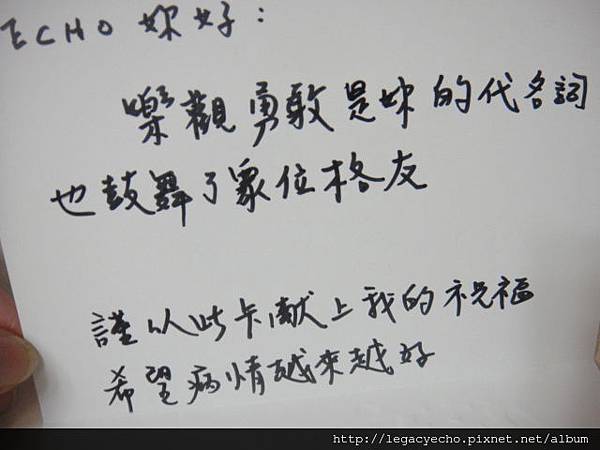 ECHO 妳好：
樂觀勇敢是妳的代名詞
也鼓舞了眾位格友
謹以此卡献上我的祝福
希望病情越來越好
http://legacyecho.pixnet.net/album